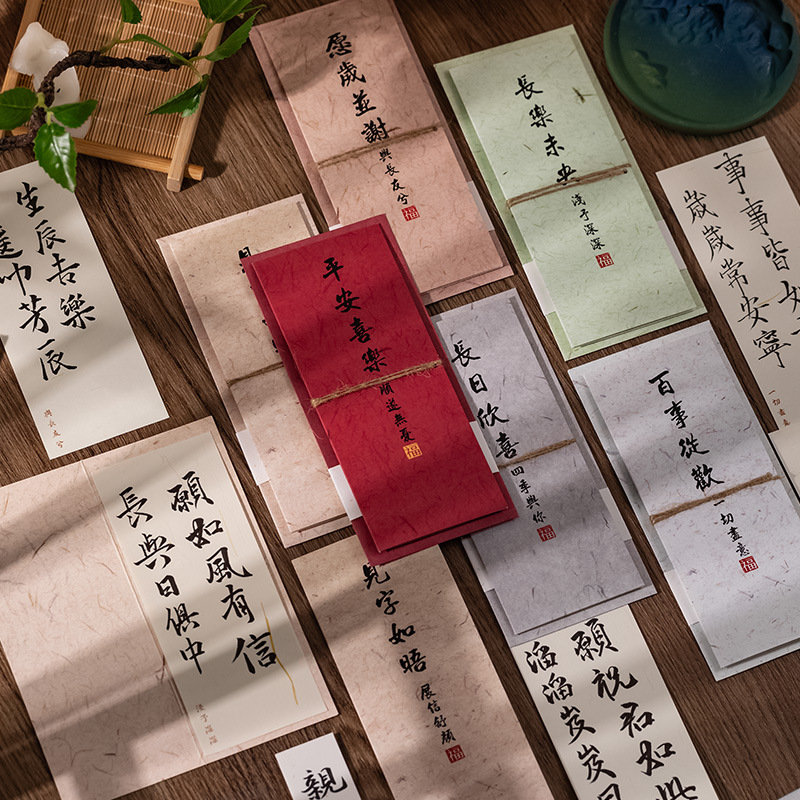 愿歲並謝
與長友兮
福
長樂未央
淺予深深
福
事事皆如
歲歲常安寧
生辰吉樂
芳辰
與長友兮
見
平安喜樂
順遂無憂
福
長日欣喜
四季與你
福
百事從歡
一切盡意
福
願如風有信
長與日俱中
淺予深深
見字如晤
展信舒顏
福
願祝君如此
溜溜岌岌
親